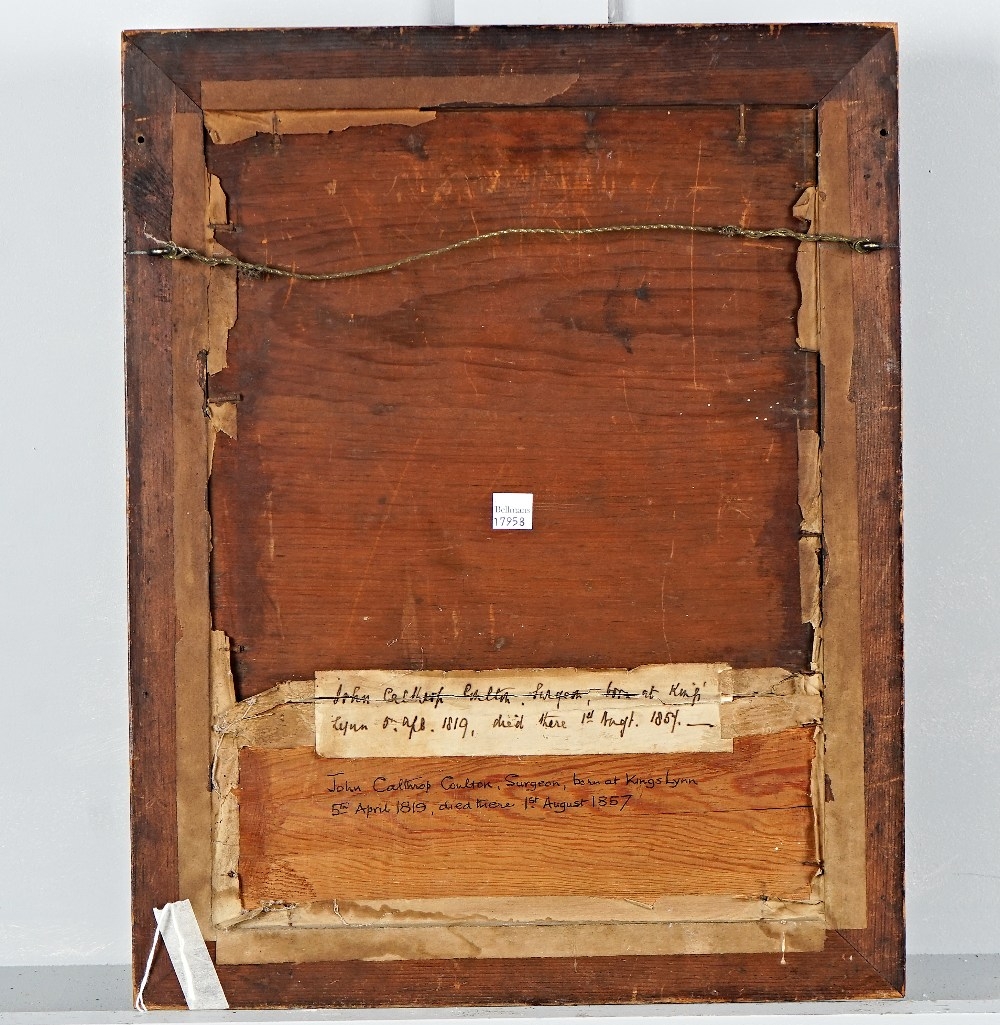 Bellmans
17958
John Calthrop Coulton. Surgeon, born at Kings'
Lynn 5. Apl. 1819, died there 1st Augt. 1857. —
John Calthrop Coulton, Surgeon, born at Kings Lynn
5th April 1819, died there 1st August 1857